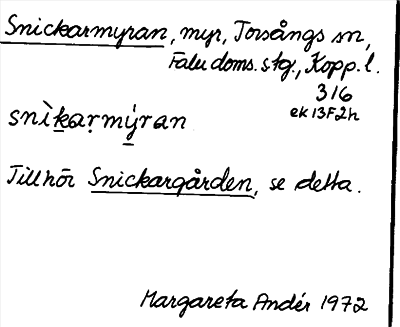 Snickarmyran, myr, Torsångs sn,
Falu doms.stg., Kopp.l.
316
ek 13F2h
snìk̲aṛmý̲ran
Tillhör Snickargården, se detta.
Margareta Andér 1972